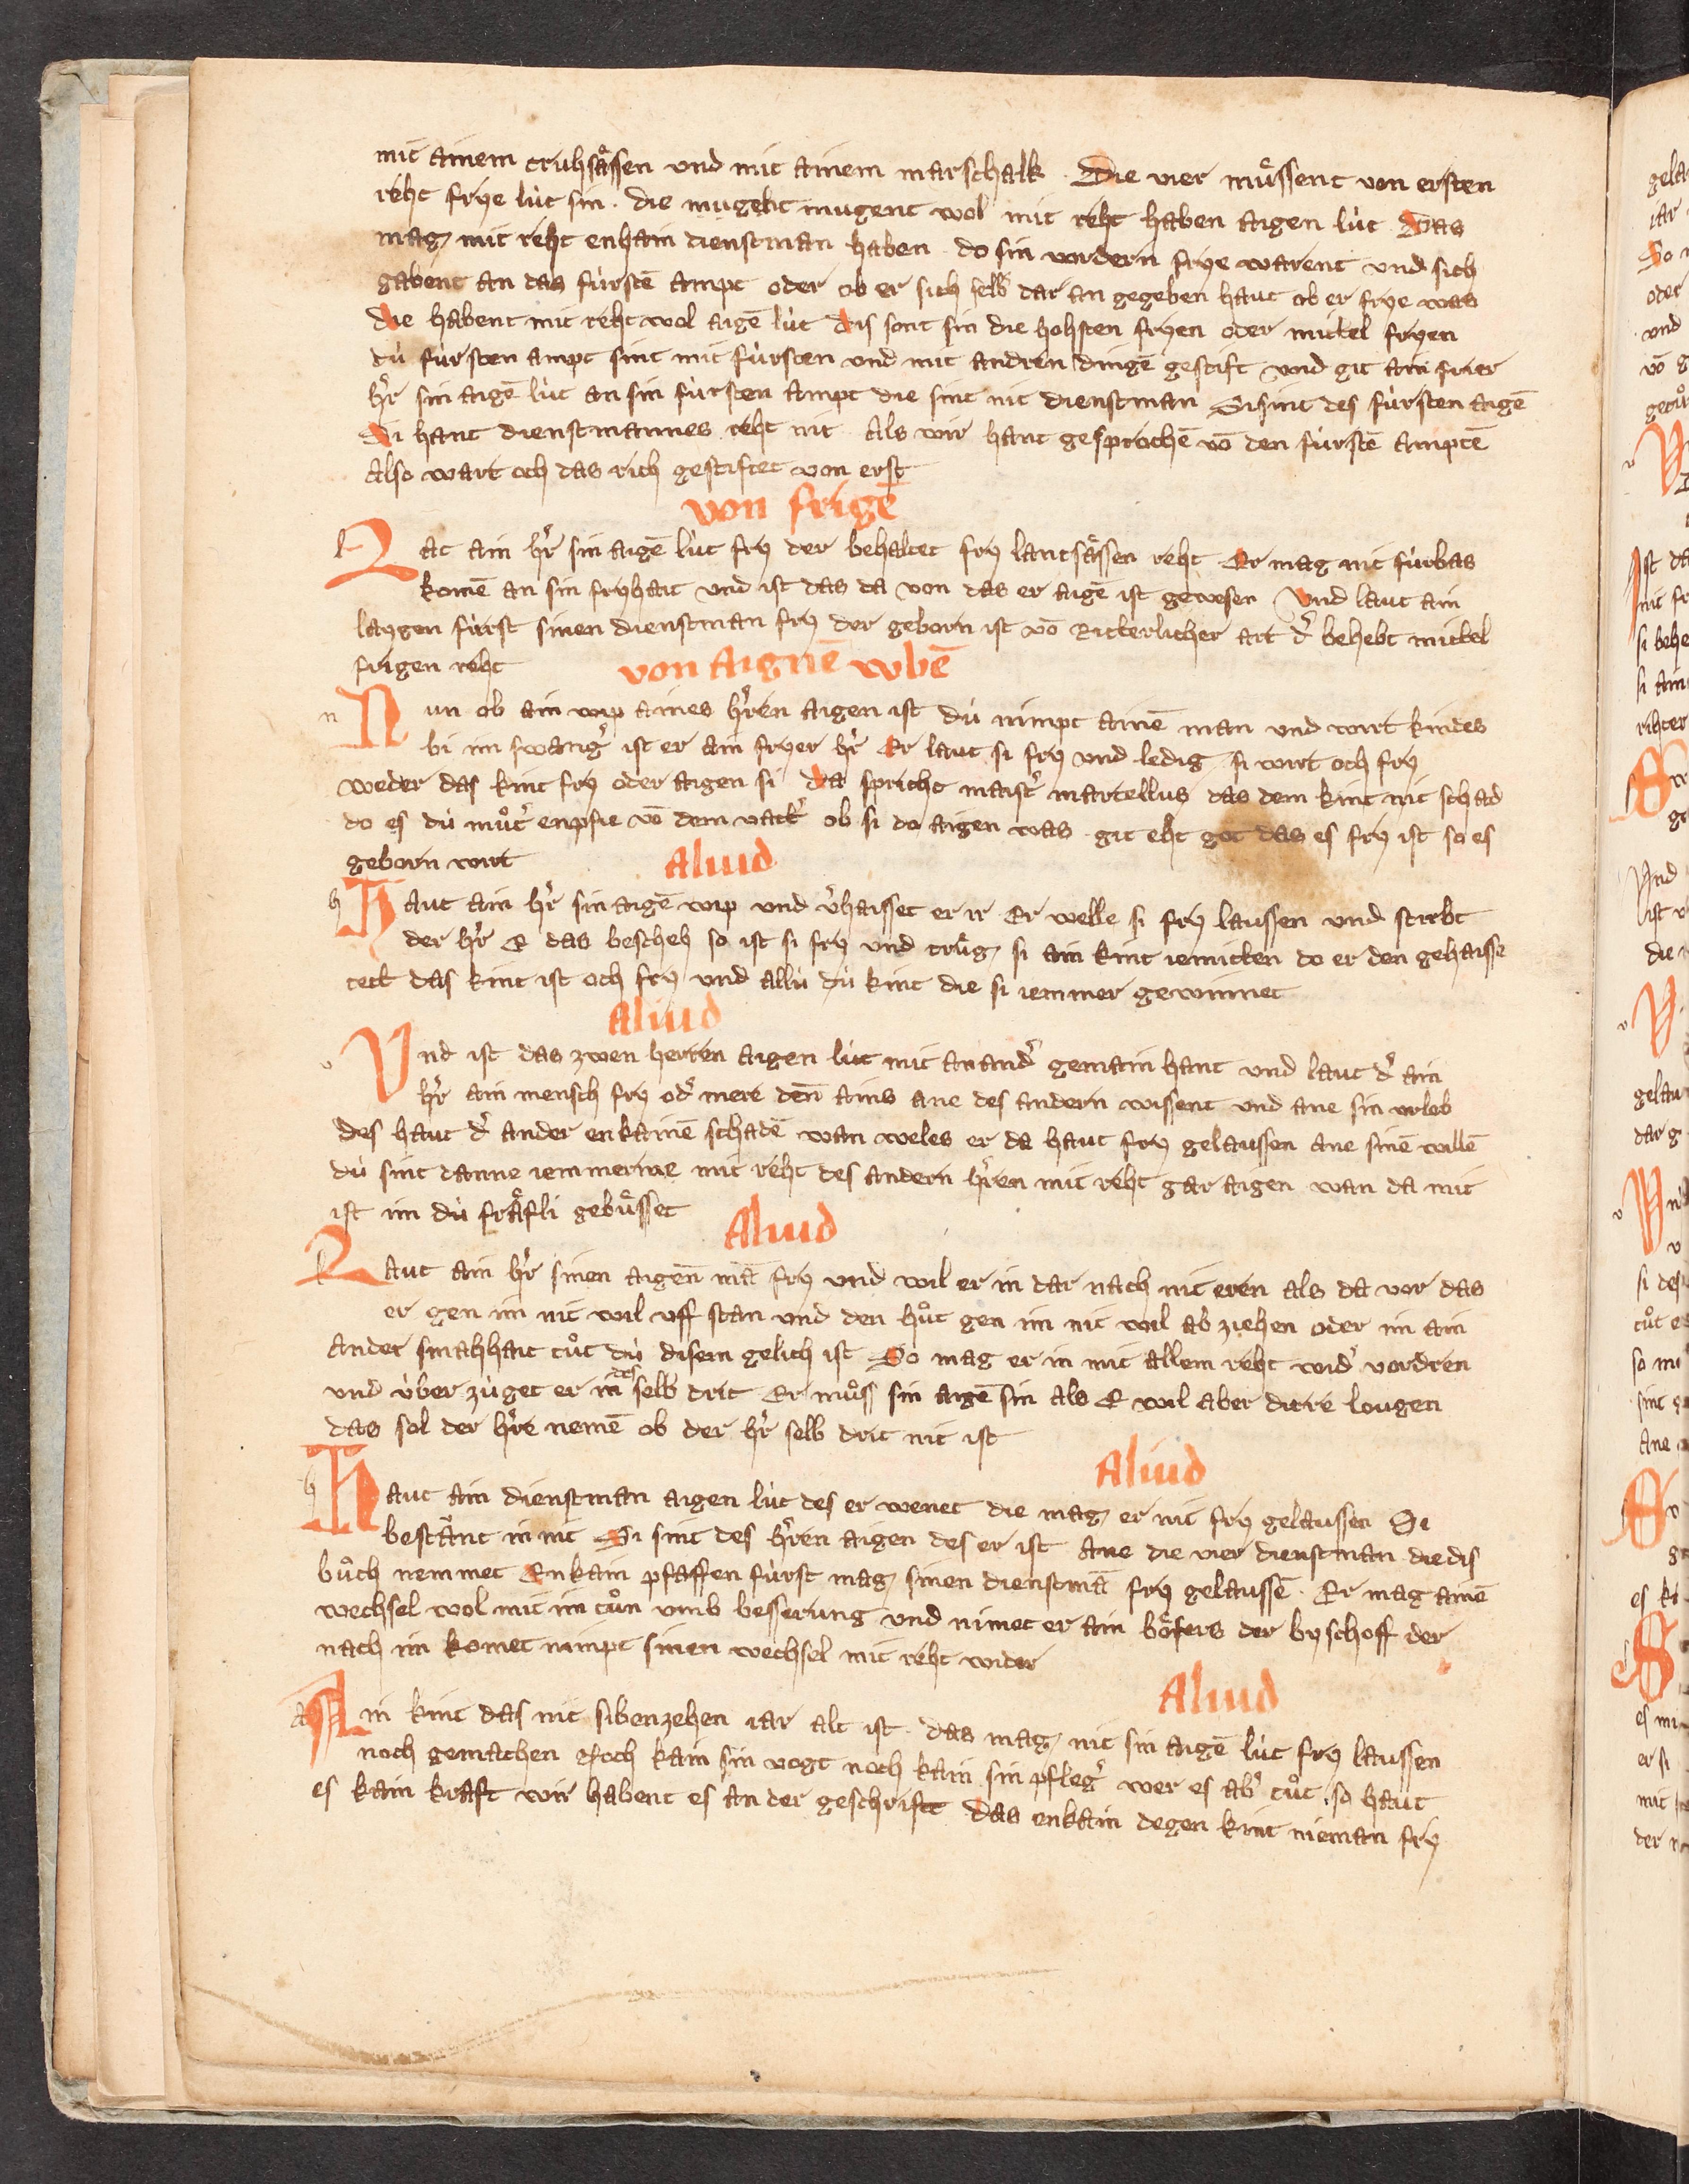 mit ainem truhsåssen und mit ainem marschalk · Die vier mu̓ssent von ersten
reht frye lu̓t sin · die mugent mugent wol mit reht haben aigen lu̓t Das
mag mit reht enhain dienstman haben · do sin vordern frye warent und sich
gabent an das fu̓rstē ampt oder ob er sich selb dar an gegeben haut ob er frye was
die habent mit reht wol aigē lu̓t dis sont sin die hohsten fryen oder mittel fryen
du̓ fu̓rsten ampt sint mit fu̓rsten und mit andren dingē gestift und git ain frier
hr̄ sin aigē lu̓t an sin fu̓rsten ampt die sint nit dienstman Si sint des fu̓rsten aigē
Si hant dienstmannes reht nit als wir hant gesprochē vō den fu̓rstē amptē
also wart och das rich gestiftet von erst
von frigē
Lat ain hr̄ sin aigē lu̓t fry der behaltet fry lantsåssen reht · Er mag nit fu̓rbas
komē an sin fryhait und ist das da von das er aigē ist gewesen Und laut ain
laygen fu̓rst sinen dienstman fry der geborn ist vō Ritterlicher art d' behebt mittel
frigen reht
von aignē wbē
Nun ob ain wip aines hr̄en aigen ist du̓ nimpt ainē man und wirt kindes
bi im swang' ist er ain fryer hr̄ Er laut si fry und ledig si wirt och fry
weder das kint fry oder aigen si da spricht maist' martellus das dem kint nit schad
do es du̓ mu̓t' enpfie vō dem vatt' ob si do aigen was · git eht got das es fry ist so es
geborn wirt
Aliud
Haut ain hr̄ sin aigē wip und v'haisset er ir Er welle si fry laussen und stirbt
der hr̄ E das bescheh so ist si fry und tru̓g si ain kint iemitten do er den gehaisse
tett das kint ist och fry und allu̓ du̓ kint die si iemmer gewinnet
Aliud
Und ist das zwen herren aigen lu̓t mit anand' gemain hant und laut d' ain
hr̄ ain mensch fry od' mere den̄ ains ane des andern wissent und ane sin urlob
des haut d' ander enkainē schadē wan weles er da haut fry gelaussen ane sinē willē
du̓ sint danne iemmerme mit reht des andern hr̄en mit reht gar aigen wan da mit
ist im du̓ fråfli gebu̓sset
Aliud
Laut ain hr̄ sinen aigen̄ mā fry und wil er in dar nach nit eren als da vor das
er gen im nit wil uff stan und den hůt gen im nit wil ab ziehen oder im ain
ander smahhait tůt du̓ disem gelich ist So mag er in mit allem reht wid' vordren
und u̓ber zu̓get er in des selb drit Er můss sin aigē sin als E wil aber dirre lougen
das sol der hr̄re nemē ob der hr̄ selb drit nit ist
Aliud
Haut ain dienstman aigen lu̓t des er wenet die mag er nit fry gelaussen Si
bestånt in nit Si sint des hr̄en aigen des er ist ane die vier dienstman die dis
bůch nemmet Enkain pfaffen fu̓rst mag sinen dienstmā fry gelaussē · Er mag ainē
wechsel wol mit im tůn umb besserung und nimet er ain bo̓sers der byschoff der
nach im komet nimpt sinen wechsel mit reht wider
Aliud
Ain kint das nit sibenzehen iar alt ist · das mag nit sin aigē lu̓t fry laussen
noch gemachen Noch kain sin vogt noch kain sin pfleg' wer es ab' tůt · so haut
es kain kraft wir habent es an der geschrift das enkain degen kint nieman fry